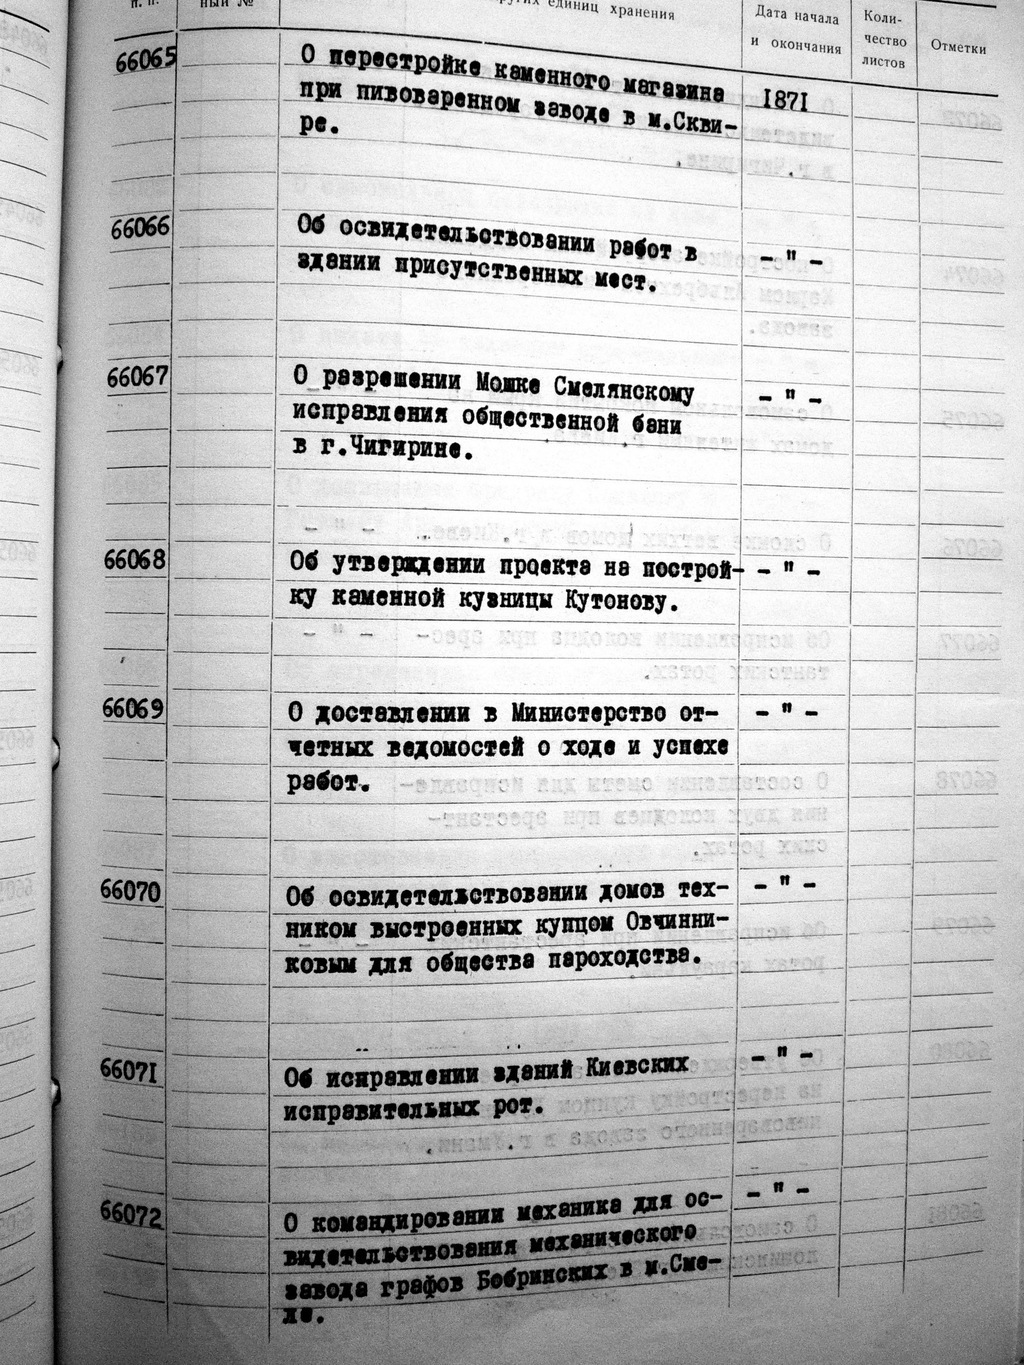 п. п.
ный №
других единиц хранения
Дата начала
и окончания
Коли-
чество
листов
Отметки
66065
О перестройке каменного магазина
1871
при пивоваренном заводе в м.Скви-
ре.
66066
Об освидетельствовании работ в
- " -
здании присутственных мест.
66067
О разрешении Мошке Смелянскому
- " -
исправления общественной бани
в г.Чигирине.
66068
Об утверждении проекта на построй-
- " -
ку каменной кузницы Кутонову.
66069
О доставлении в Министерство от-
- " -
четных ведомостей о ходе и успехе
работ.
66070
Об освидетельствовании домов тех-
- " -
ником выстроенных купцом Овчинни-
ковым для общества пароходства.
66071
Об исправлении зданий Киевских
- " -
исправительных рот.
66072
О командировании механика для ос-
- " -
видетельствования механического
завода графов Бобринских в м.Сме-
ле.